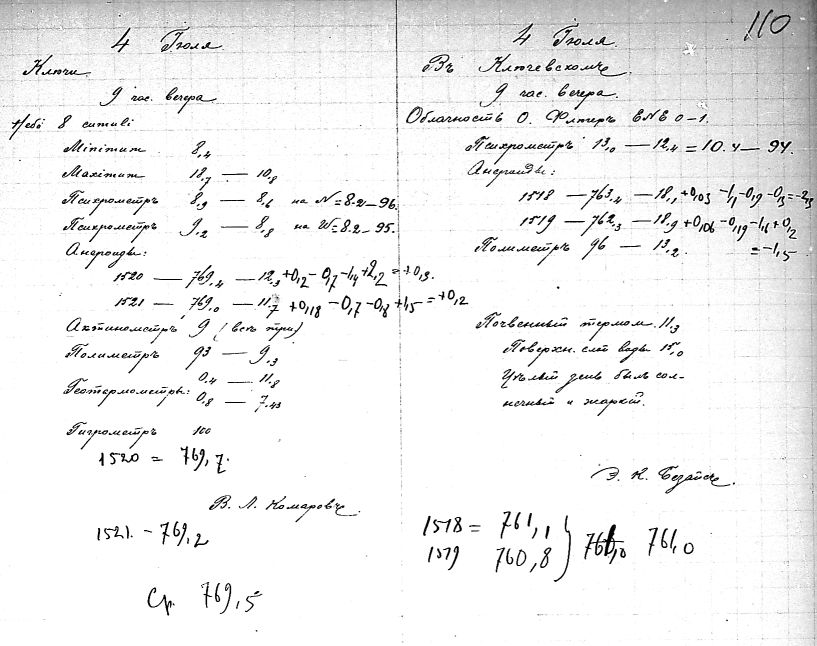 110
4 Iюля
Ключи
9 час. вечера
Небо 8
Minimum 8,4
Maximum 18,7 — 10,8
Психрометръ 8,9 — 8,6 на N = 8.2 — 96.
Психрометръ 9,2 — 8,8 на W = 8.2 — 95.
Анероиды:
1520 — 769,4 — 12,3 +0,2 — 0,7 — 1,4 +2,2 = +0,3.
1521 — 769,0 — 11,7 +0,18 — 0,7 — 0,8 +1,5 = +0,2
Актинометръ 9 (всѣ три)
Полиметръ 93 — 9,3
Геотермометры: 0,4 — 11,8
0,8 — 7,43
Гигрометръ 100
1520 = 769,7.
В. Л. Комаровъ.
1521 — 769,2
Ср. 769,5
4 Iюля.
Въ Ключевскомъ.
9 час. вечера.
Облачность 0. Флюгеръ ENE 0-1.
Психрометръ 13,0 — 12,4 = 10.4 — 94.
Анероиды:
1518 — 763,4 — 18,1 +0,03 — 1,1 — 0,9 — 0,3 = — 2,3
1519 — 762,3 — 18,9 +0,06 — 0,19 — 1,6 +0,2
= — 1,5
Полиметръ 96 — 13,2
Почвенный термом. 11,3
Поверхн. слой воды 15,0
Цѣлый день былъ сол-
нечный и жаркій.
Э. К. Безайсъ.
1518 = 761,1
1519 760,8 } 761,0 761,0